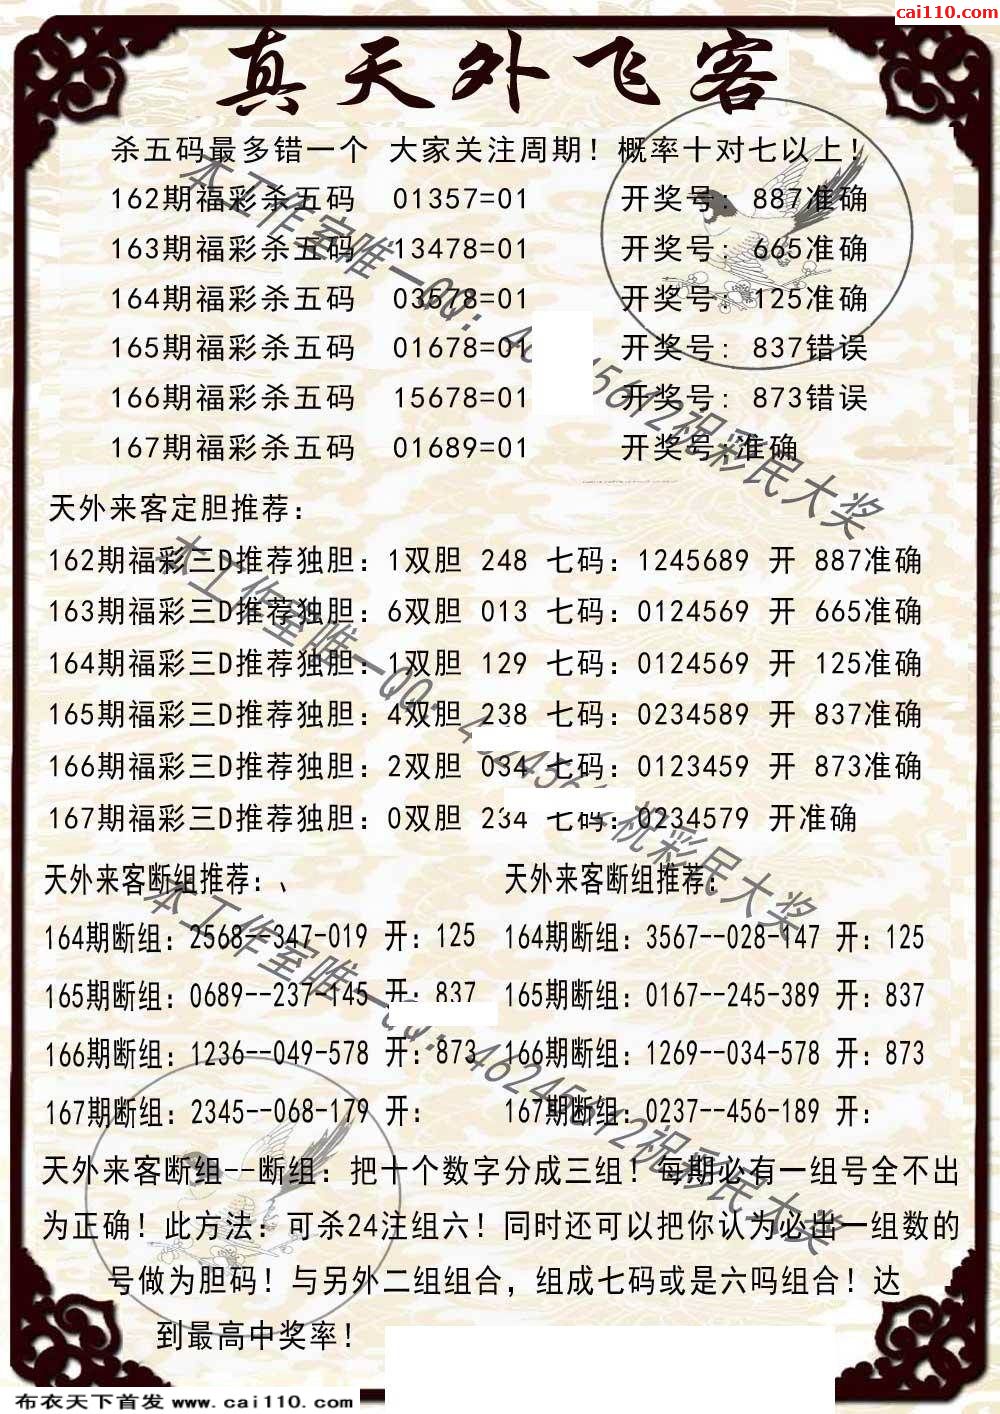 cai110.com
真天外飞客
杀五码最多错一个 大家关注周期！概率十对七以上！
162期福彩杀五码 01357=01 开奖号：887准确
163期福彩杀五码 13478=01 开奖号：665准确
164期福彩杀五码 03578=01 开奖号：125准确
165期福彩杀五码 01678=01 开奖号：837错误
166期福彩杀五码 15678=01 开奖号：873错误
167期福彩杀五码 01689=01 开奖号:准确
天外来客定胆推荐：
162期福彩三D推荐独胆：1双胆 248 七码：1245689 开 887准确
163期福彩三D推荐独胆：6双胆 013 七码：0124569 开 665准确
164期福彩三D推荐独胆：1双胆 129 七码：0124569 开 125准确
165期福彩三D推荐独胆：4双胆 238 七码：0234589 开 837准确
166期福彩三D推荐独胆：2双胆 034 七码：0123459 开 873准确
167期福彩三D推荐独胆：0双胆 234 七码：0234579 开准确
天外来客断组推荐：、 天外来客断组推荐：
164期断组：2568--347-019 开：125 164期断组：3567--028-147 开：125
165期断组：0689--237-145 开：837 165期断组：0167--245-389 开：837
166期断组：1236--049-578 开：873 166期断组：1269--034-578 开：873
167期断组：2345--068-179 开： 167期断组：0237--456-189 开：
天外来客断组--断组：把十个数字分成三组！每期必有一组号全不出
为正确！此方法：可杀24注组六！同时还可以把你认为必出一组数的
号做为胆码！与另外二组组合，组成七码或是六吗组合！达
到最高中奖率！
本工作室唯一QQ：
祝彩民大奖
本工作室唯一QQ：
祝彩民大奖
本工作室唯一
46245612祝彩民大奖
布衣天下首发 www.cai110.com